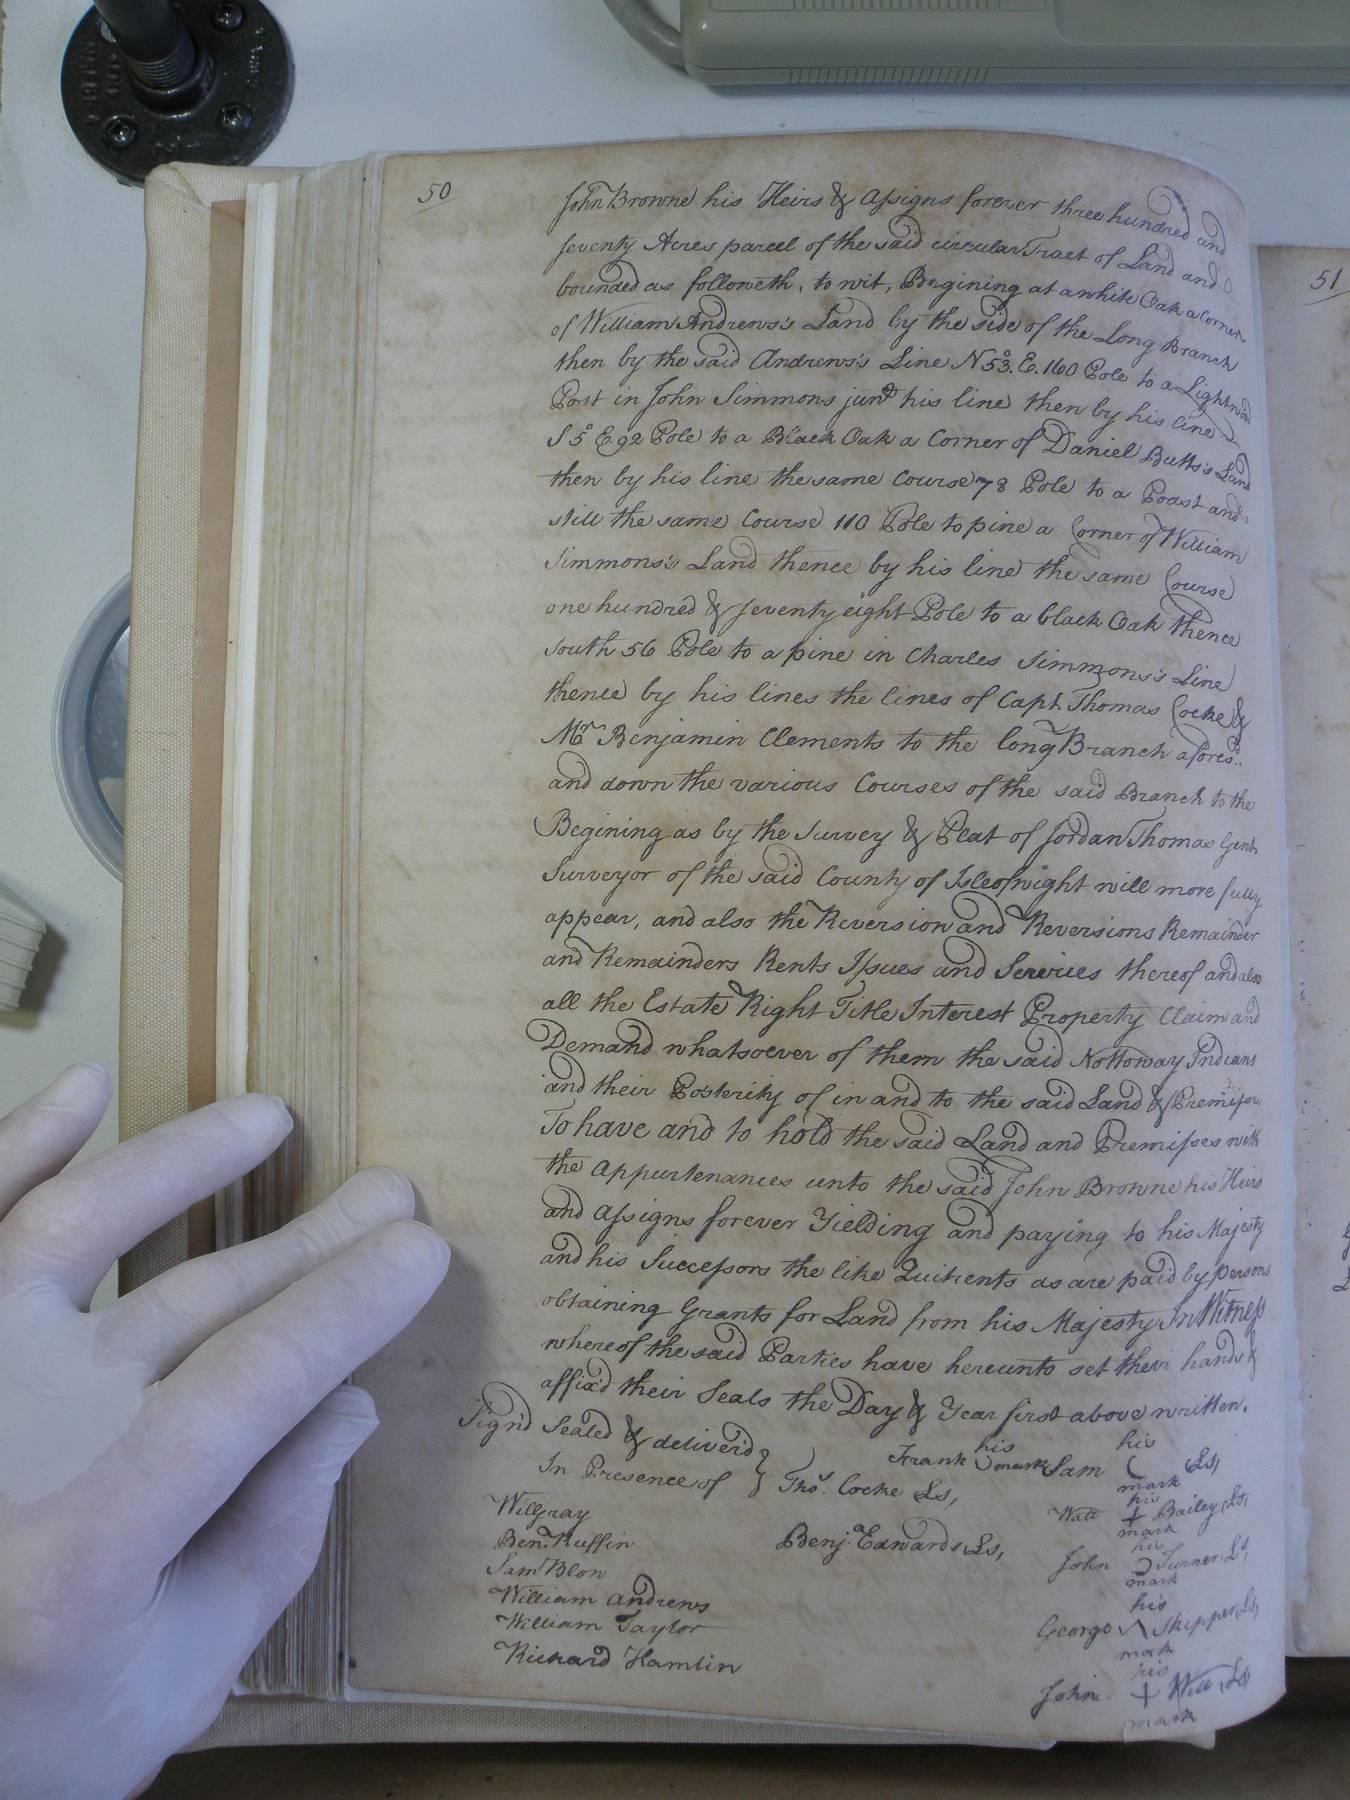 50
John Browne his Heirs & Assigns forever three hundred and
seventy Acres parcel of the said circular Tract of Land and
bounded as followeth, to wit, Begining at a white Oak a Corner
of William Andrews's Land by the side of the Long Branch
then by the said Andrews's Line N 53° E. 160 Pole to a Lightwood
Post in John Simmons junr his line then by his line
S 5° E 92 Pole to a Black Oak a Corner of Daniel Butts's Land
then by his line the same Course 78 Pole to a Poast and
still the same Course 110 Pole to pine a Corner of William
Simmons's Land thence by his line the same Course
one hundred & seventy eight Pole to a black Oak thence
South 56 Pole to a pine in Charles Simmons's Line
thence by his lines the lines of Capt. Thomas Cocke &
Mr Benjamin Clements to the long Branch afores.d
and down the various Courses of the said Branch to the
Begining as by the Survey & Plat of Jordan Thomas Gent.
Surveyor of the said County of Isleofwight will more fully
appear, and also the Reversion and Reversions Remainder
and Remainders Rents Issues and Services thereof and also
all the Estate Right Title Interest Property Claim and
Demand whatsoever of them the said Nottoway Indians
and their Posterity of in and to the said Land & Premises
To have and to hold the said Land and Premisses with
the appurtenances unto the said John Browne his Heirs
and Assigns forever Yielding and paying to his Majesty
and his Successors the like Quitrents as are paid by persons
obtaining Grants for Land from his Majesty In Witness
whereof the said Parties have hereunto set their hands &
affix'd their Seals the Day & Year first above written.
Sign'd Sealed & deliver'd
In Presence of
Will Gray
Ben. Ruffin
Sam Blow
William Andrews
William Taylor
Richard Hamlin
Tho.s Cocke Ls,
Benj.a Edwards Ls,
his
Frank mark
his
Sam Ls,
mark
his
Watt + Bailey Ls,
mark
his
John Turner Ls,
mark
his
George Skipper Ls,
mark
his
John + Will Ls
mark
51